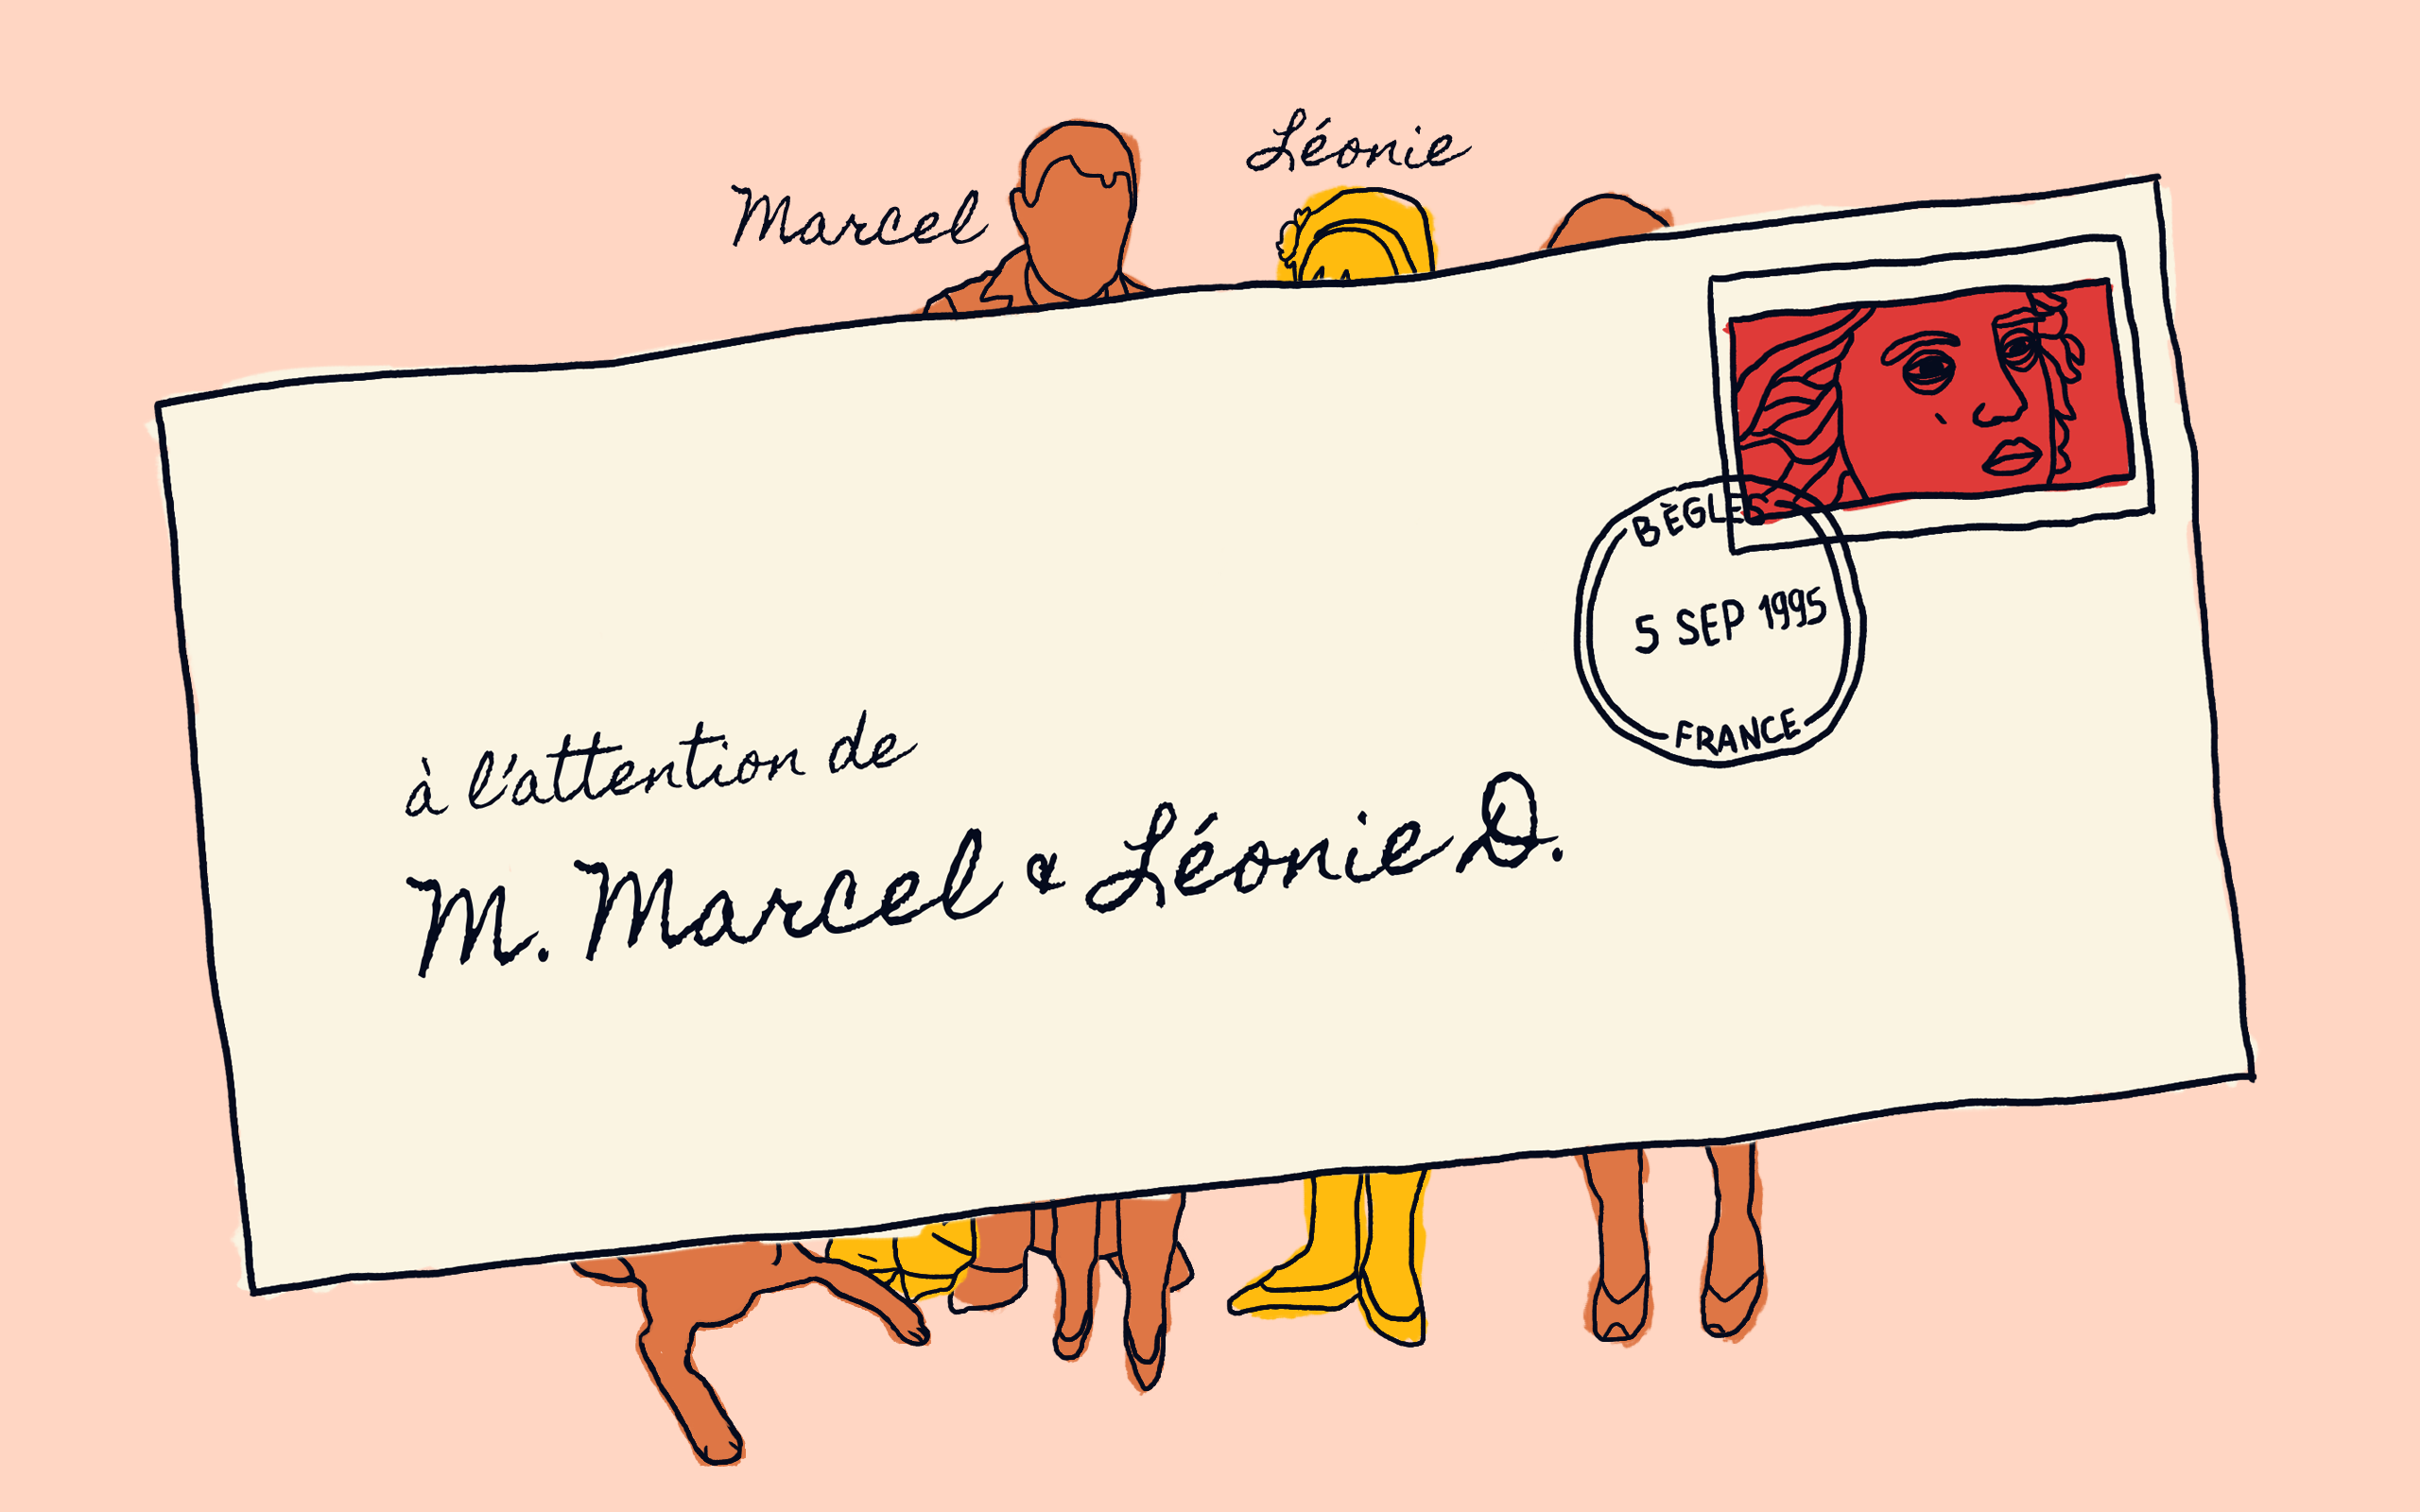 Marcel
Léonie
BÈGLES
5 SEP 1995
FRANCE
à l'attention de
M. Marcel & Léonie D.